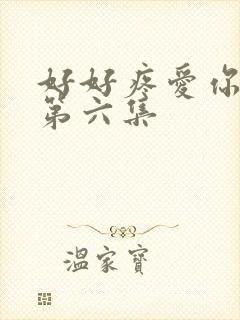 好好疼爱你
第六集
温家宝